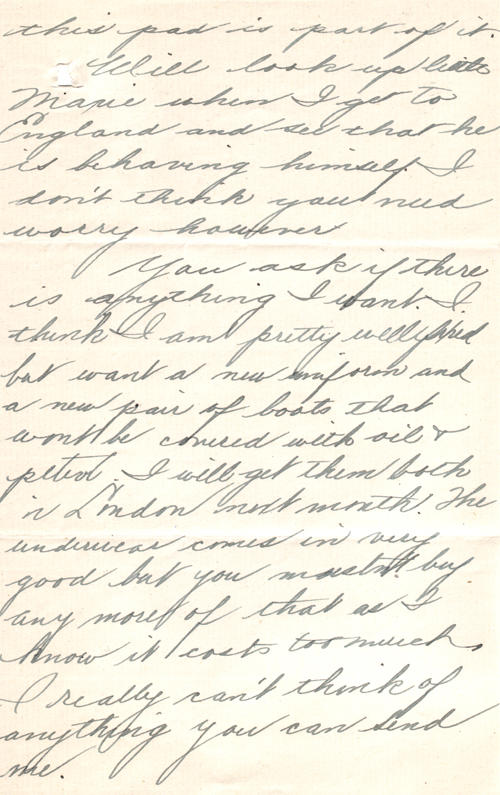 this pad is part of it.
Will look up little
Marie when I get to
England and see that he
is behaving himself. I
don't think you need
worry however
You ask if there
is anything I want. I
think I am pretty well fixed
but want a new uniform and
a new pair of boots that
wont be covered with oil &
petrol. I will get them both
in London next month. The
underwear comes in very
good but you mustn't buy
any more of that as I
know it costs too much.
I really can't think of
anything you can send
me.